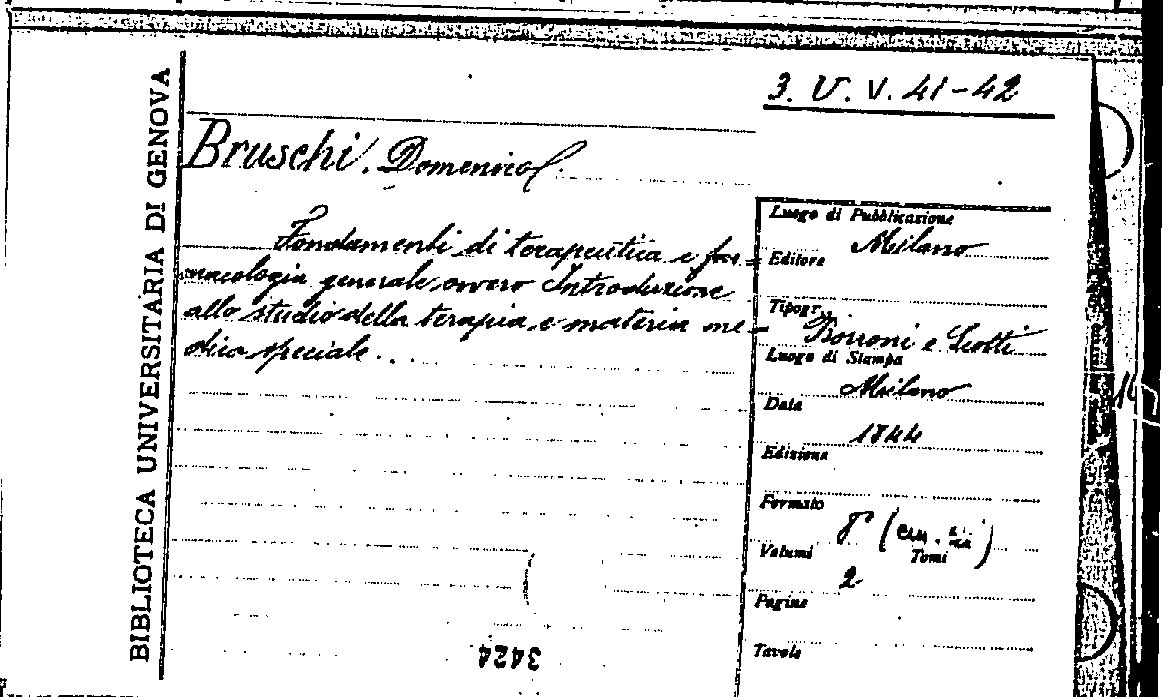 3. V. V. 41-42
BIBLIOTECA UNIVERSITARIA DI GENOVA
Bruschi, Domenico
Fondamenti di terapeutica e far=
macologia generale, ovvero Introduzione
allo studio della terapia e materia me=
dica speciale...
Luogo di Pubblicazione
Milano
Editore
Tipogr.
Borroni e Scotti
Luogo di Stampa
Milano
Data
1844
Edizione
Formato
8° (cm.
Volumi
Tomi
2
Pagine
Tavole
3424